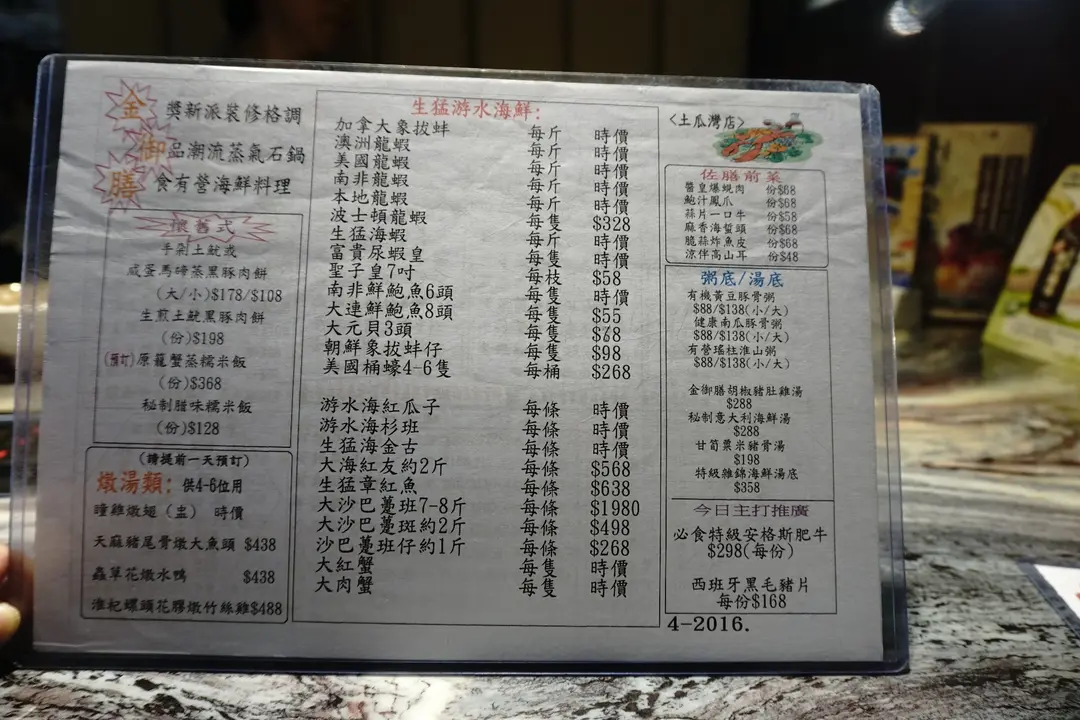 金 獎新派裝修格調
御 品潮流蒸氣石鍋
膳 食有營海鮮料理
懷舊式
手剁土魷或
咸蛋馬啼蒸黑豚肉餅
(大/小)$178/$108
生煎土魷黑豚肉餅
(份)$198
(預訂)原籠蟹蒸糯米飯
(份)$368
秘制腊味糯米飯
(份)$128
(請提前一天預訂)
燉湯類: 供4-6位用
燉翅(盅) 時價
天麻豬尾骨燉大魚頭 $438
蟲草花燉水鴨 $438
淮杞螺頭花膠燉竹絲雞$488
生猛游水海鮮:
加拿大象拔蚌 每斤 時價
澳洲龍蝦 每斤 時價
美國龍蝦 每斤 時價
南非龍蝦 每斤 時價
本地龍蝦 每斤 時價
波士頓龍蝦 每隻 $328
生猛海蝦 每斤 時價
富貴尿蝦皇 每隻 時價
聖子皇7吋 每枝 $58
南非鮮鮑魚6頭 每隻 時價
大連鮮鮑魚8頭 每隻 $55
大元貝3頭 每隻 $78
朝鮮象拔蚌仔 每隻 $98
美國桶蠔4-6隻 每桶 $268
游水海紅瓜子 每條 時價
游水海杉班 每條 時價
生猛海金古 每條 時價
大海紅友約2斤 每條 $568
生猛章紅魚 每條 $638
大沙巴躉班7-8斤 每條 $1980
大沙巴躉斑約2斤 每條 $498
沙巴躉班仔約1斤 每條 $268
大紅蟹 每隻 時價
大肉蟹 每隻 時價
<土瓜灣店>
佐膳前菜
醬皇爆蜆肉 份$68
鮑汁鳳爪 份$68
蒜片一口牛 份$58
麻香海蜇頭 份$68
脆蒜炸魚皮 份$68
涼伴高山耳 份$48
粥底/湯底
有機黃豆豚骨粥
$88/$138(小/大)
健康南瓜豚骨粥
$88/$138(小/大)
有營瑤柱淮山粥
$88/$138(小/大)
金御膳胡椒豬肚雞湯
$288
秘制意大利海鮮湯
$288
甘筍粟米豬骨湯
$198
特級雜錦海鮮湯底
$358
今日主打推廣
必食特級安格斯肥牛
$298(每份)
西班牙黑毛豬片
每份$168
4-2016.